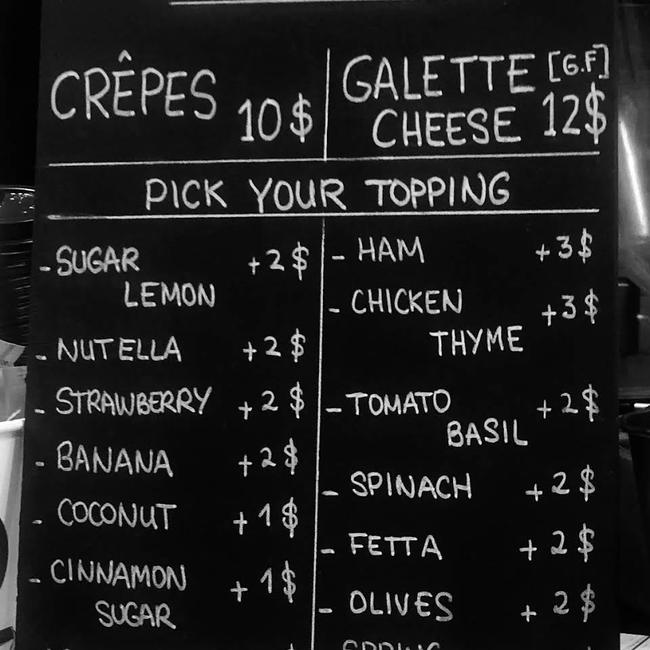 CRÊPES 10$
GALETTE [G.F]
CHEESE 12$
PICK YOUR TOPPING
- SUGAR +2$
LEMON
- NUTELLA +2$
- STRAWBERRY +2$
- BANANA +2$
- COCONUT +1$
- CINNAMON +1$
SUGAR
- HAM +3$
- CHICKEN +3$
THYME
- TOMATO +2$
BASIL
- SPINACH +2$
- FETTA +2$
- OLIVES +2$
SPRING